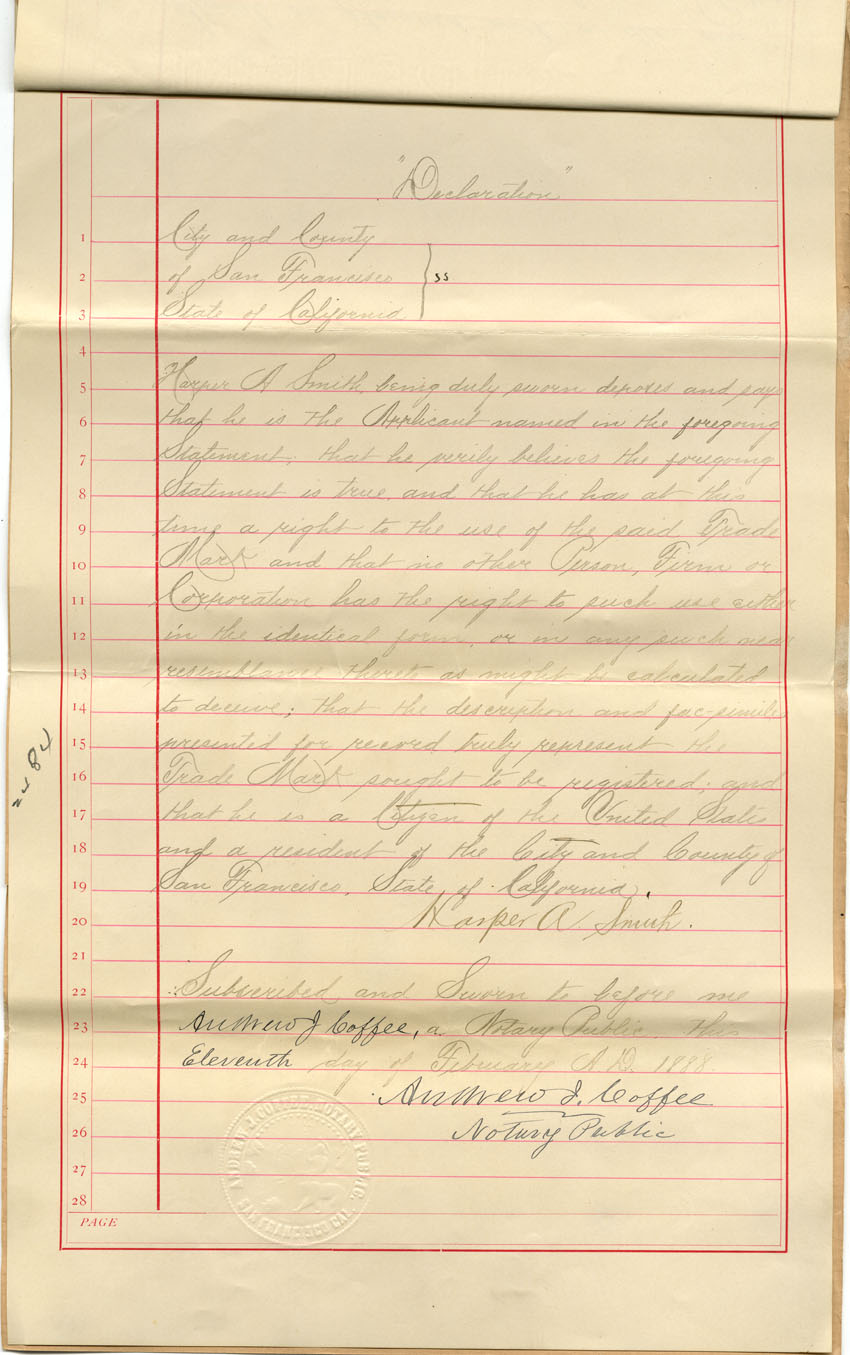 "Declaration"
1 City and County
2 of San Francisco } ss
3 State of California
4
5 Harper A Smith, being duly sworn deposes and says
6 that he is the Applicant named in the foregoing
7 Statement; that he verily believes the foregoing
8 Statement is true and that he has at this
9 time a right to the use of the said Trade
10 Mark and that no other Person, Firm or
11 Corporation has the right to such use either
12 in the identical form, or in any such near
13 resemblance thereto as might be calculated
14 to deceive; that the description and fac-simile
15 presented for record truly represent the
16 Trade Mark sought to be registered; and
17 that he is a Citizen of the United States
18 and a resident of the City and County of
19 San Francisco, State of California.
20 Harper A. Smith.
21
22 Subscribed and Sworn to before me
23 Andrew J Coffee, a Notary Public, this
24 Eleventh day of February A.D. 1888.
25 Andrew J. Coffee
26 Notary Public
27
28
PAGE
ANDREW J. COFFEE, NOTARY PUBLIC,
SAN FRANCISCO CAL.